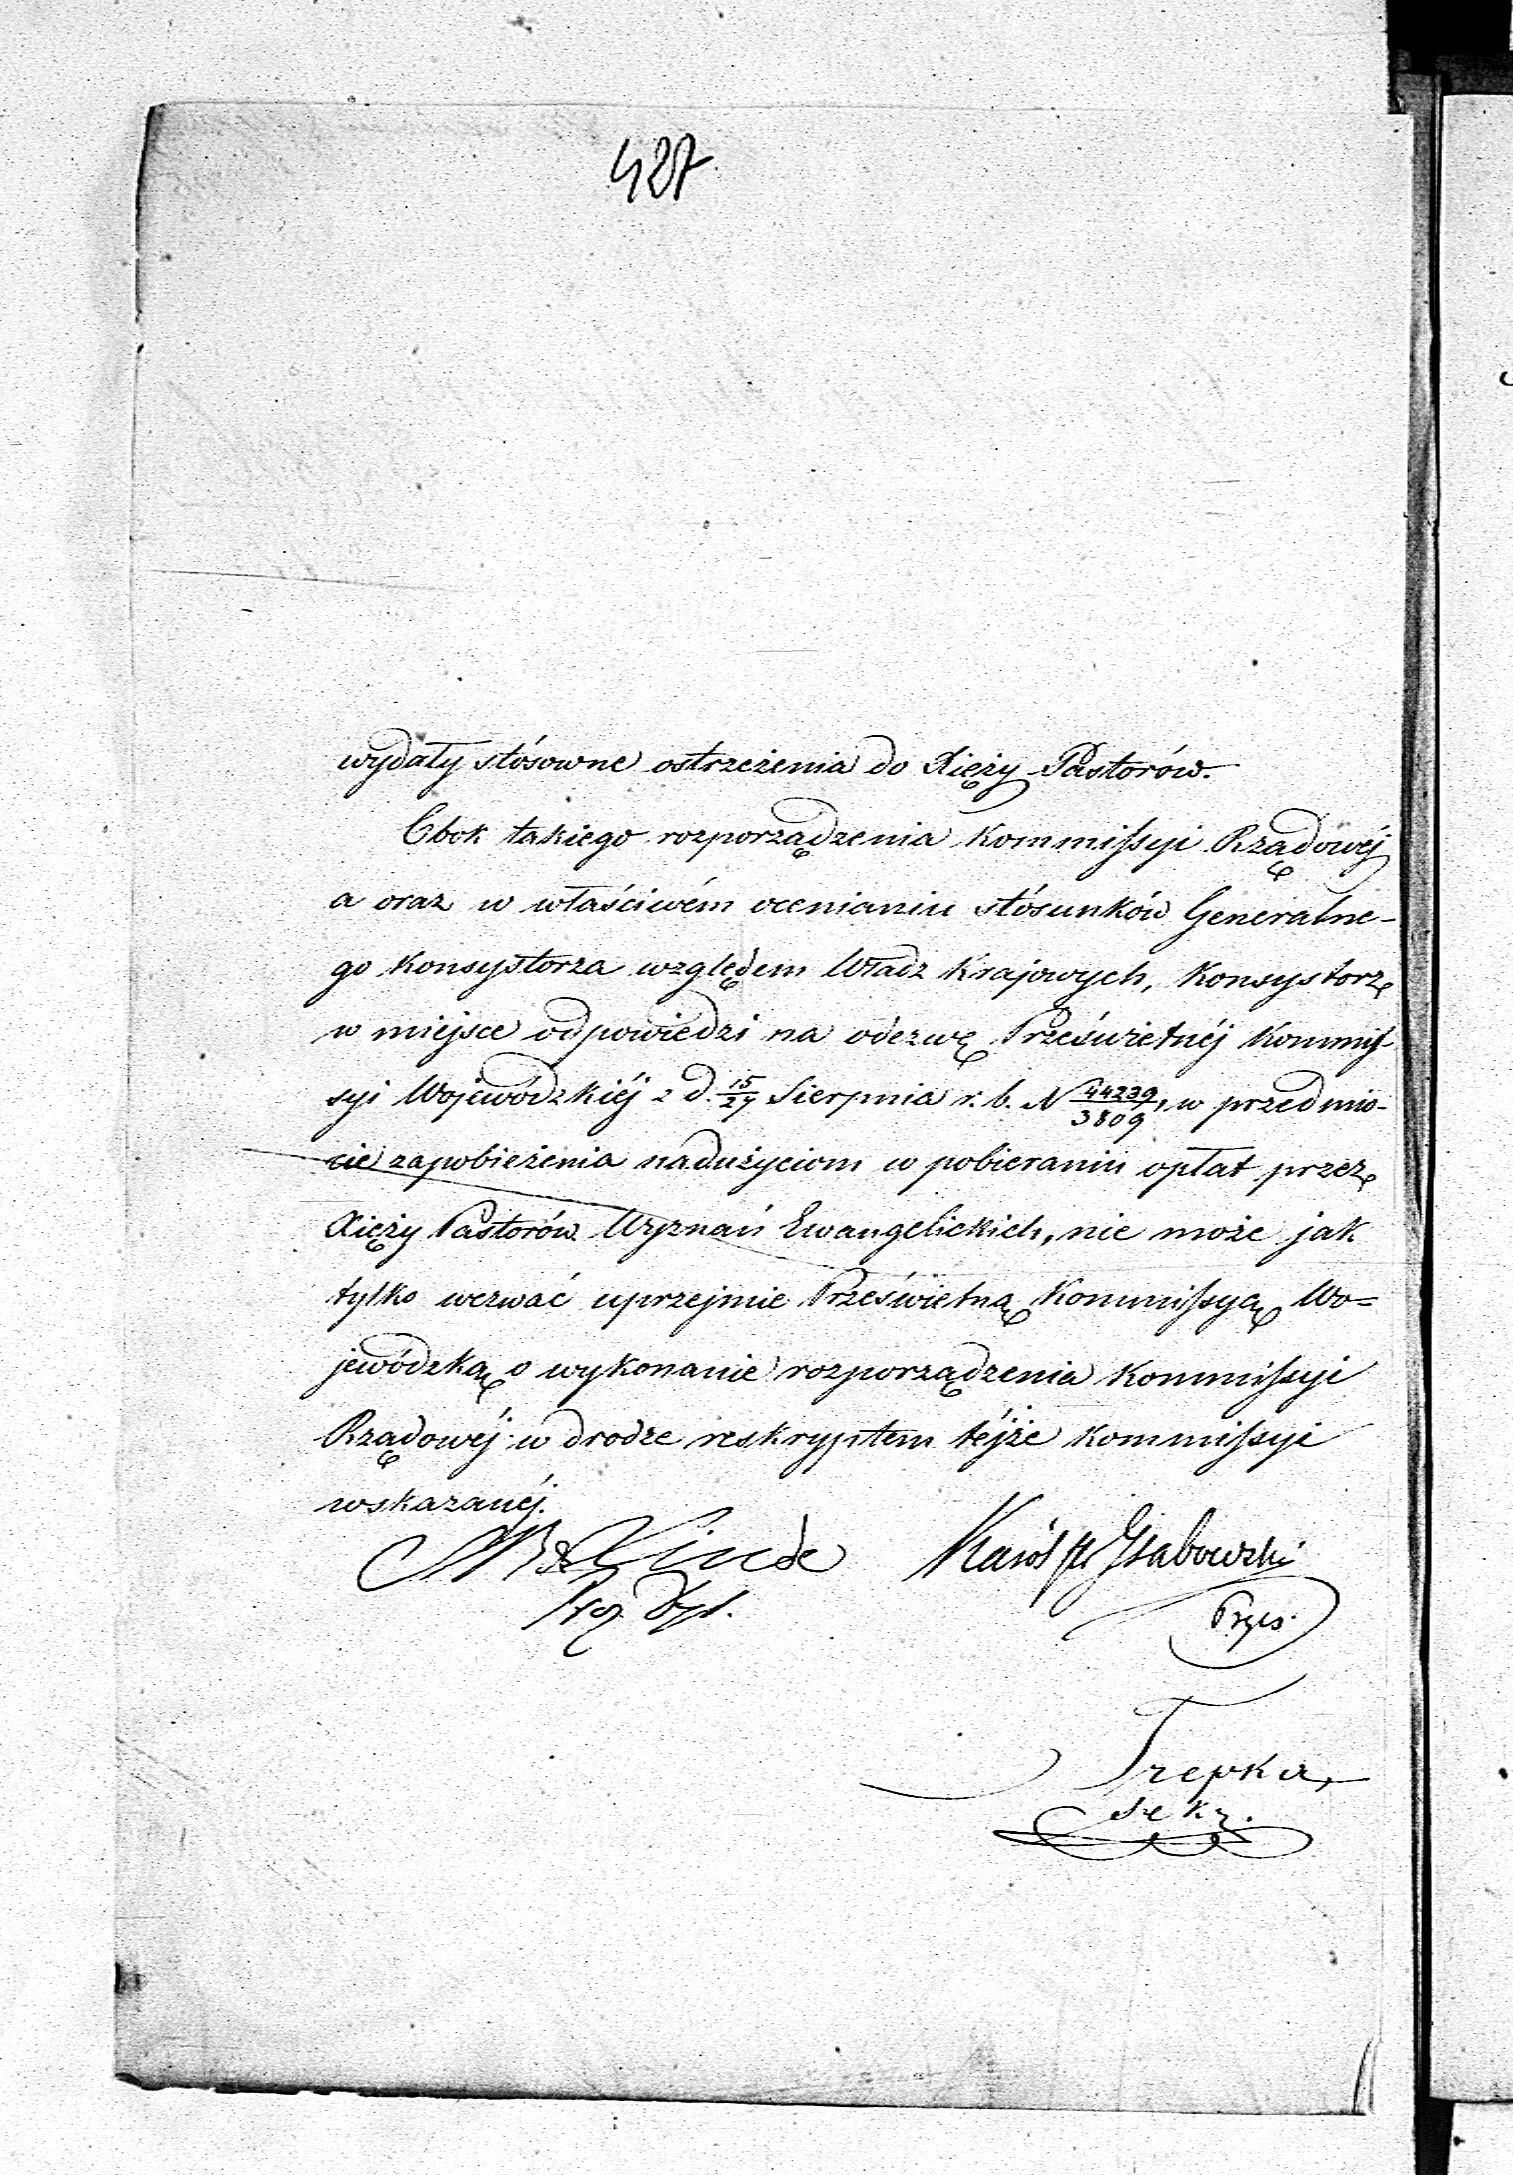 427.
wydały stósowne ostrzeżenia do Xięży Pastorów.
Obok takiego rozporządzenia Kommissyi Rządowéj
a oraz w właściwém ocenianiu stósunków Generalne-
go Konsystorza względem Władz Krajowych, Konsystorz
w miejsce odpowiedzi na odezwę Prześwietnéj Kommis-
syi Wojewódzkiéj z d. 15/27 Sierpnia r. b. N 44239/3809, w przedmio-
cie zapobieżenia nadużyciom w pobieraniu opłat przez
Xięży Pastorów Wyznań Ewangelickich, nie może jak
tylko wezwać uprzejmie Prześwietną Kommissyą Wo=
jewódzką o wykonanie rozporządzenia Kommissyi
Rządowéj w drodze reskryptem téjże Kommissyi
wskazanéj.
Linde Karól Grabowski
Prezes.
Trepka,
Sekr.